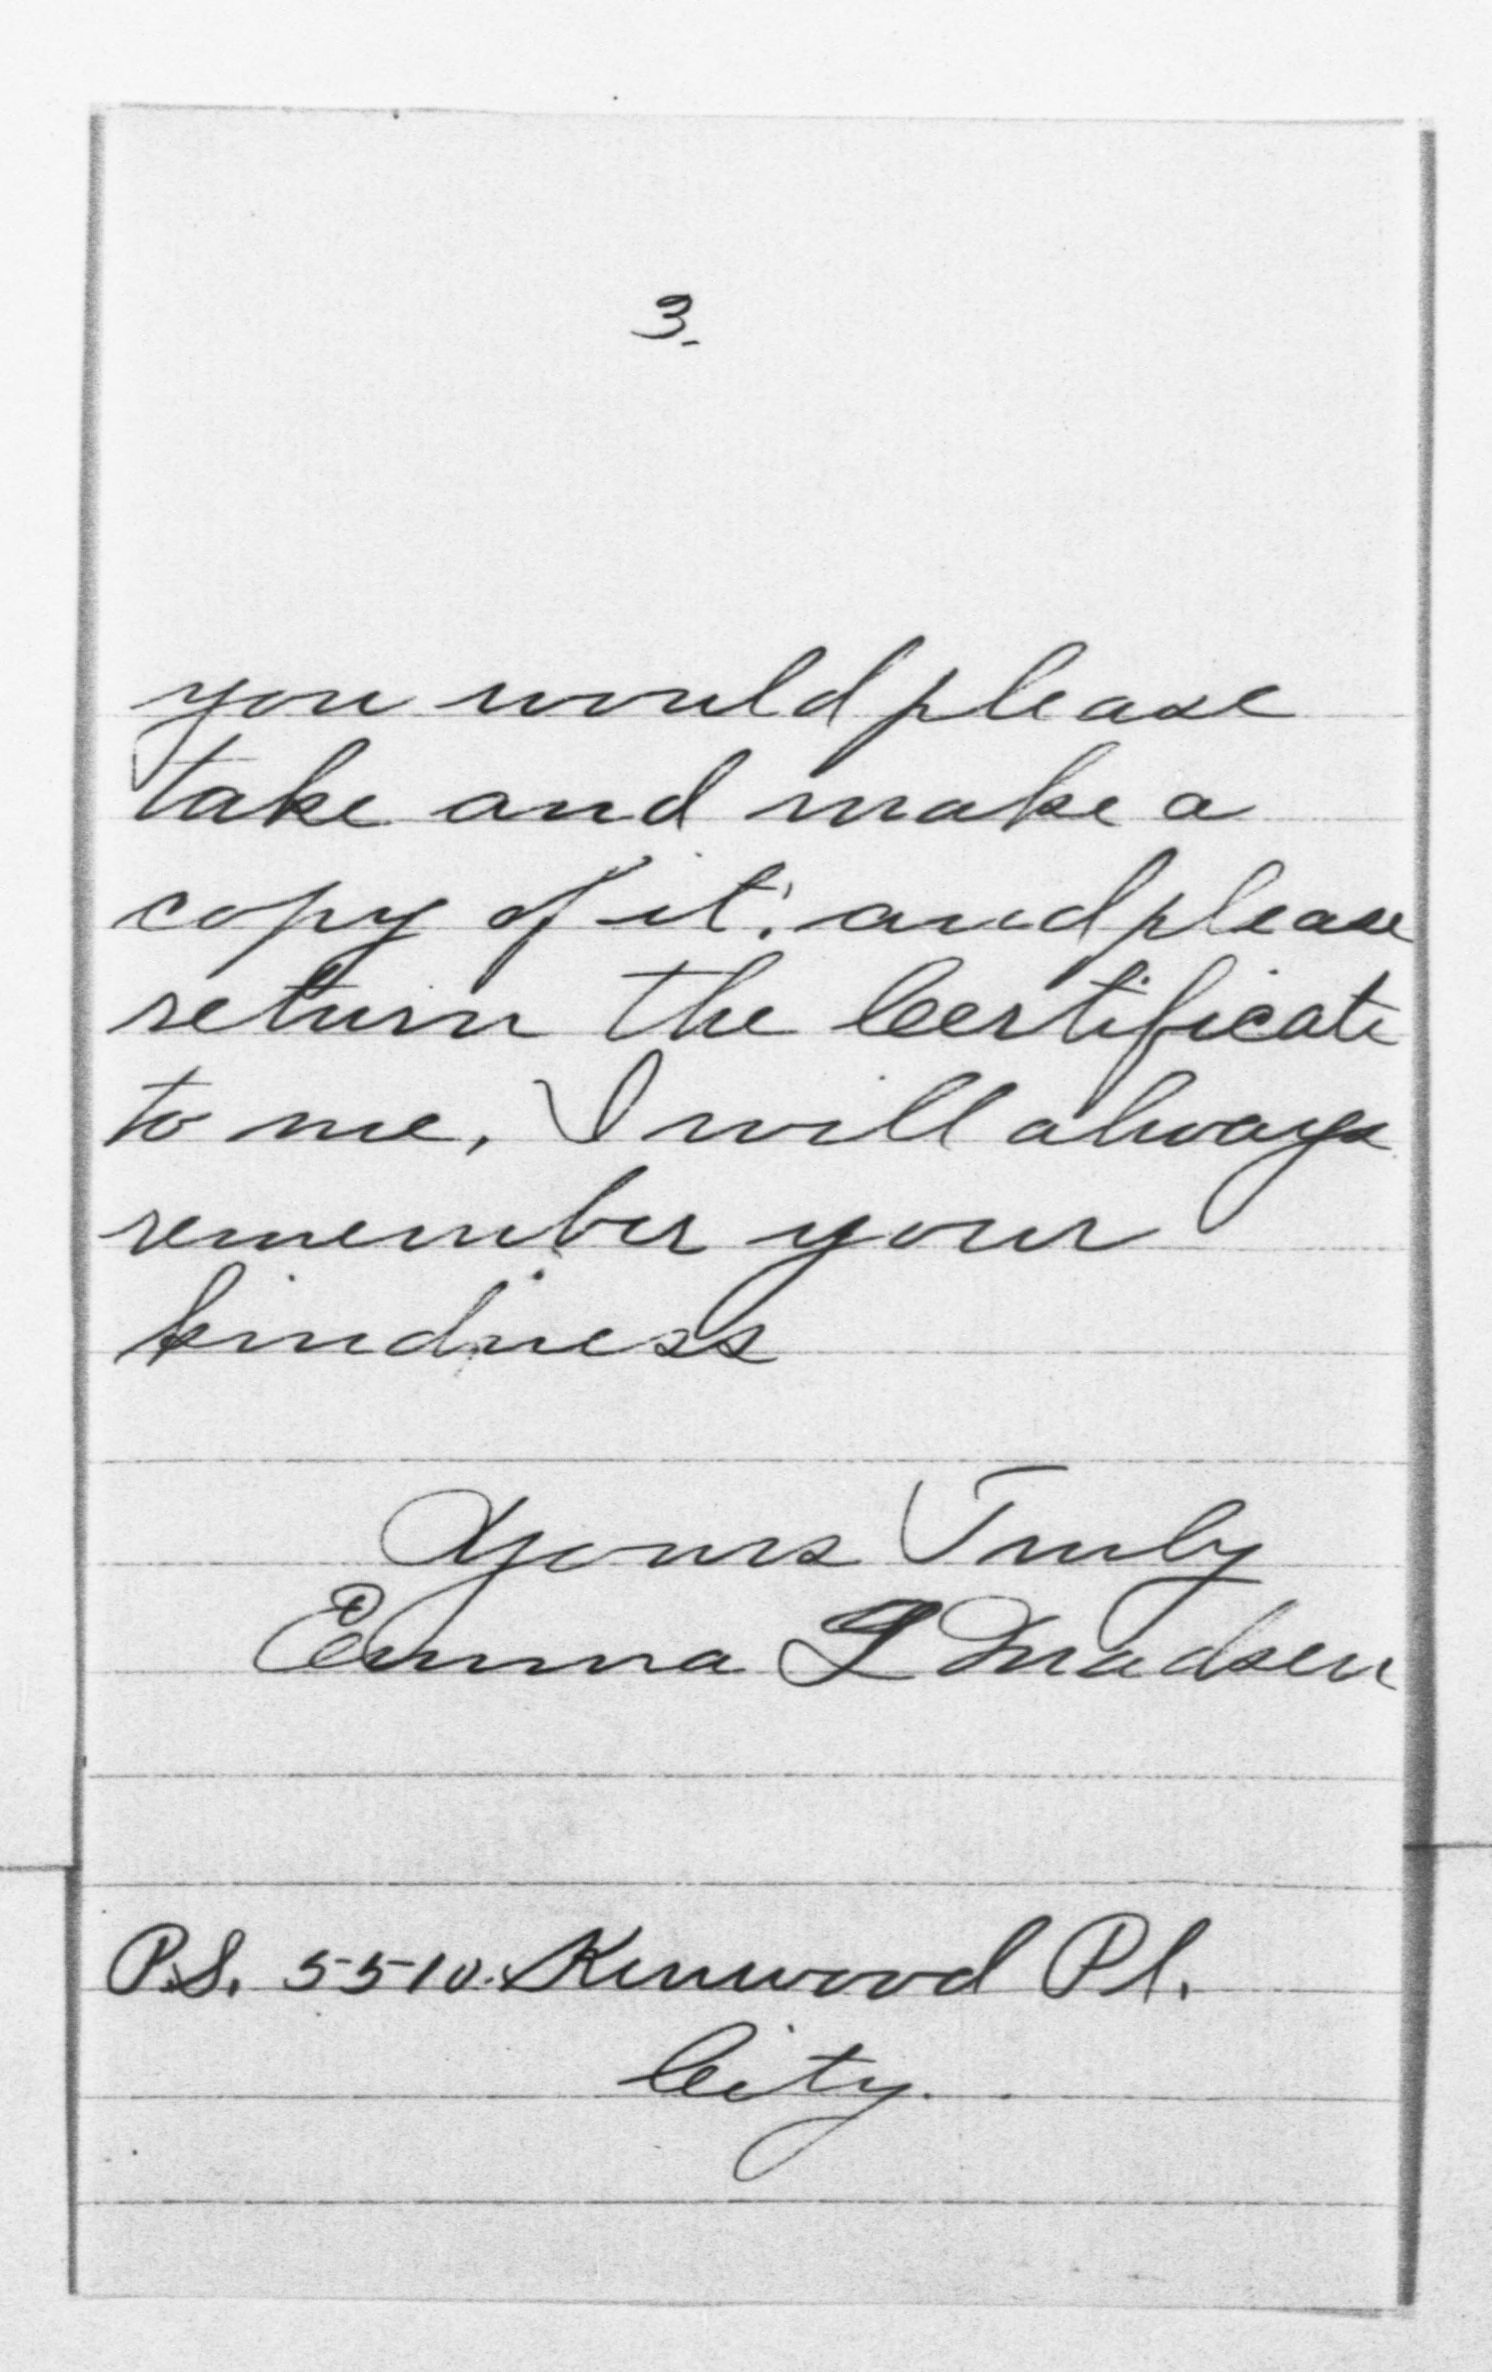 3.
you would please
take and make a
copy of it. and please
return the Certificate
to me, I will always
remember your
kindness
Yours Truly
Emma L Madsen
P.S. 5510. Kenwood Pl.
City.